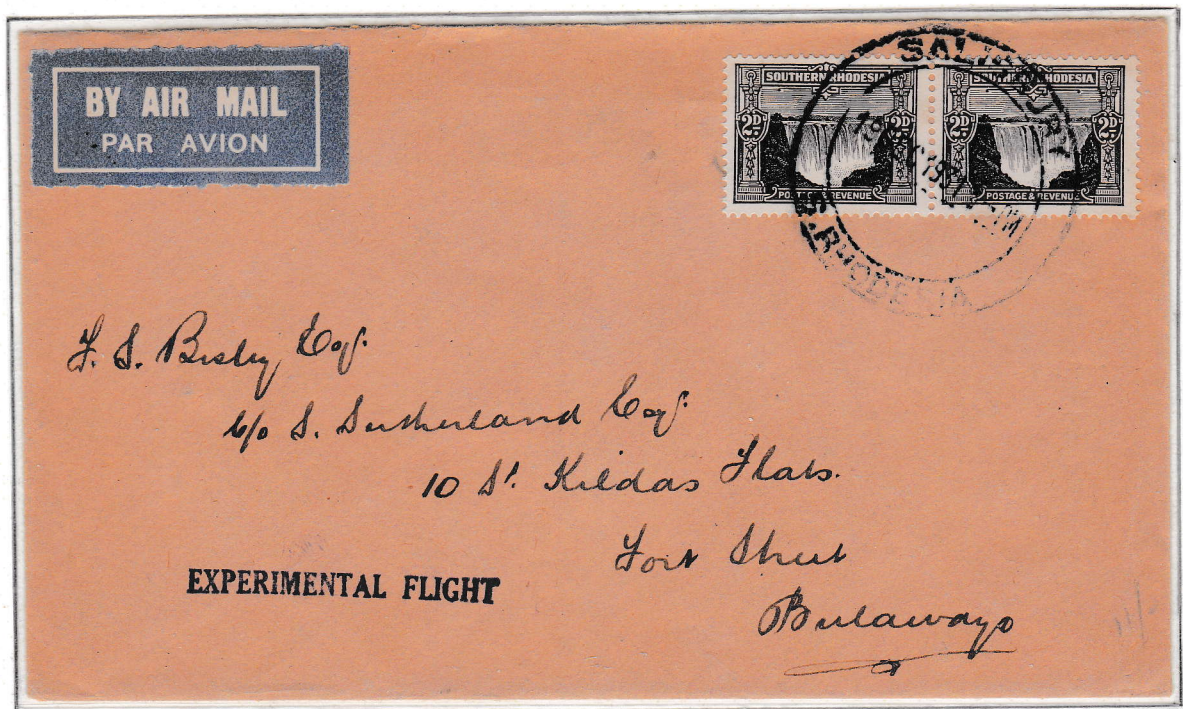 BY AIR MAIL
PAR AVION
SOUTHERN RHODESIA
2D 2D
POSTAGE & REVENUE
SOUTHERN RHODESIA
2D 2D
POSTAGE & REVENUE
SALISBURY
S. RHODESIA
F. S. Besley Esq.
c/o S. Sutherland Esq.
10 St. Kildas Flats.
Fort Street
Bulawayo
EXPERIMENTAL FLIGHT